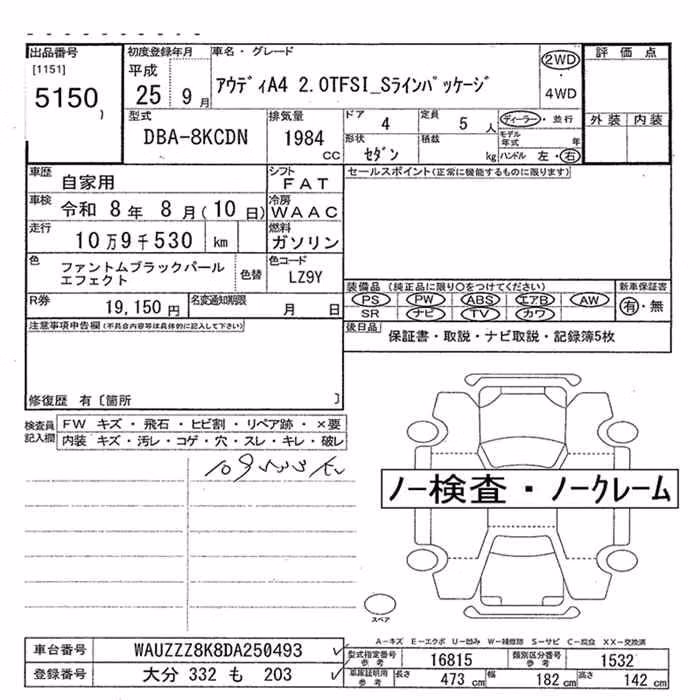 出品番号
[1151]
5150
初度登録年月
平成
25 9月
車名・グレード
アウディA4 2.0TFSI_Sラインパッケージ
2WD
・
4WD
評価点
外装 内装
型式
DBA-8KCDN
排気量
1984
CC
ドア 4
定員 5 人
ディーラー・並行
モデル年式 年
形状 セダン
積載 kg
ハンドル 左・右
車歴 自家用
シフト FAT
セールスポイント(正常に機能するものに限ります)
車検 令和 8年 8月(10日)
冷房 WAAC
走行 10万9千530 km
燃料 ガソリン
色 ファントムブラックパールエフェクト
色替
色コード LZ9Y
装備品(純正品に限り○をつけてください)
新車保証書
PS PW ABS エアB AW
SR ナビ TV カワ
有・無
R券 19,150円
名変通知期限 月 日
後日品 保証書・取説・ナビ取説・記録簿5枚
注意事項申告欄(不具合内容等は具体的に記入して下さい)
修復歴 有〔箇所 〕
検査員記入欄
FW キズ・飛石・ヒビ割・リペア跡・×要
内装 キズ・汚レ・コゲ・穴・スレ・キレ・破レ
ノー検査・ノークレーム
スペア
A-キズ E-エクボ U-凹み W-補修跡 S-サビ C-腐食 XX-交換済
車台番号 WAUZZZ8K8DA250493
型式指定番号 参考 16815
類別区分番号 参考 1532
登録番号 大分 332 も 203
車庫証明用 参考
長さ 473 cm
幅 182 cm
高さ 142 cm